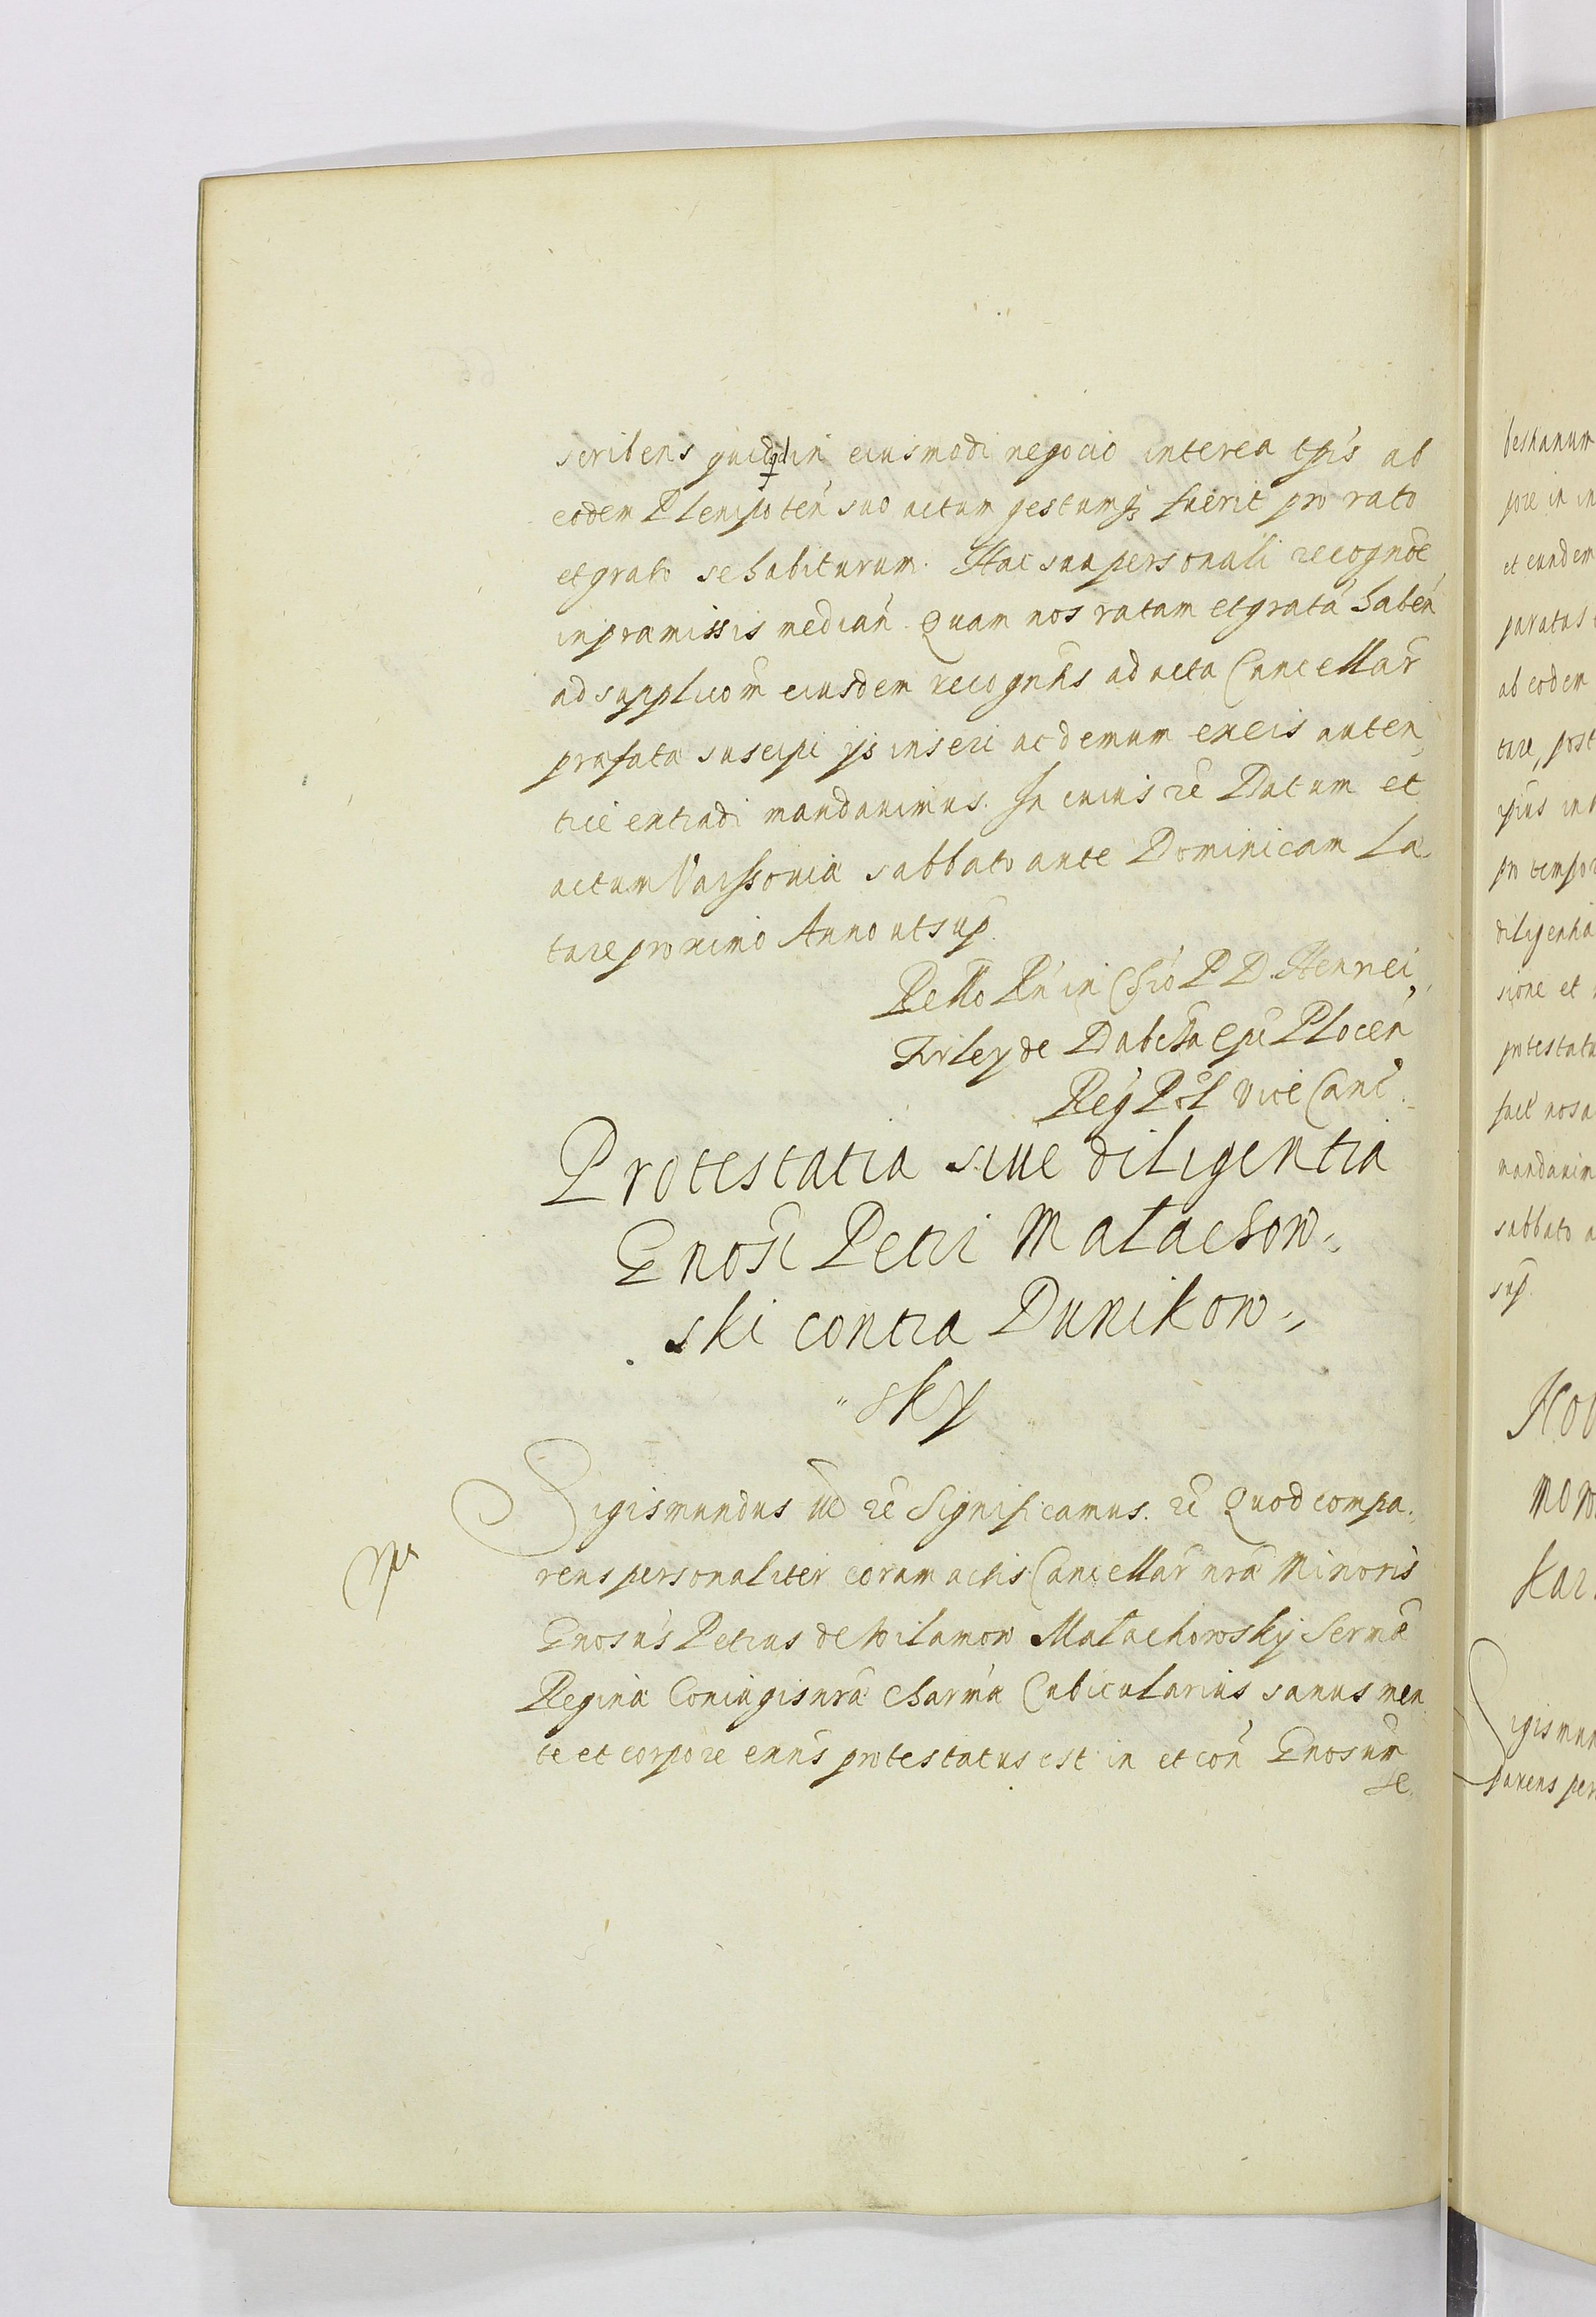 scribens quidquid in eiusmodi negocio interea tp̃is ab
eodem Plenipoten̄ suo actum gestumq₃ fuerit pro rato
et grato se habiturum. Hac sua personali recogn̄oe
in præmissis median̄ Quam nos ratam et gratā haben̄
ad supplicōm eiusdem recogn̄tis ad acta Cancellar̄
præfata suscipi ijs inseri ac demum ex eis auten,
tice extradi mandauimus. In cuius rē Datum et
actum Varssouiæ sabbato ante Dominicam Læ,
tare proximo Anno ut sup̄.
Rello Rn̄ in Chr̄o P D. Henrici,
Firley de Dabr̄ E͂pi Plocen̄
Reg̃ Pol Vice Canc̄.
Protestatia siue diligentia
Gnosi Petri Małachow,,
ski contra Dunikow,,
sky
Sigismundus III rē Significamus. rē Quod compa,
rens personaliter coram actis Cancellar̄ nr̄æ Minoris
Gnosus Petrus de Wilamow Małachowskÿ Serm̄æ
Reginæ Coniugis nr̄æ Charm̄æ Cubicularius sanus men
te et corpore exn̄s protestatus est in et con̄ Gnosum
Se,
beskanum
pore in in
et eundem
paratas
ab eodem
tare, post
ipius in
pro tempor
diligentia
sione et
protestatu
fact̄ nos a
mandauim
sabbato a
sup̄.
mow
Kar
Sigismun
parens per